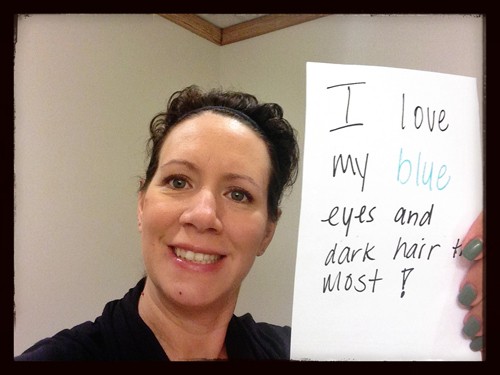 I love
my blue
eyes and
dark hair
most!